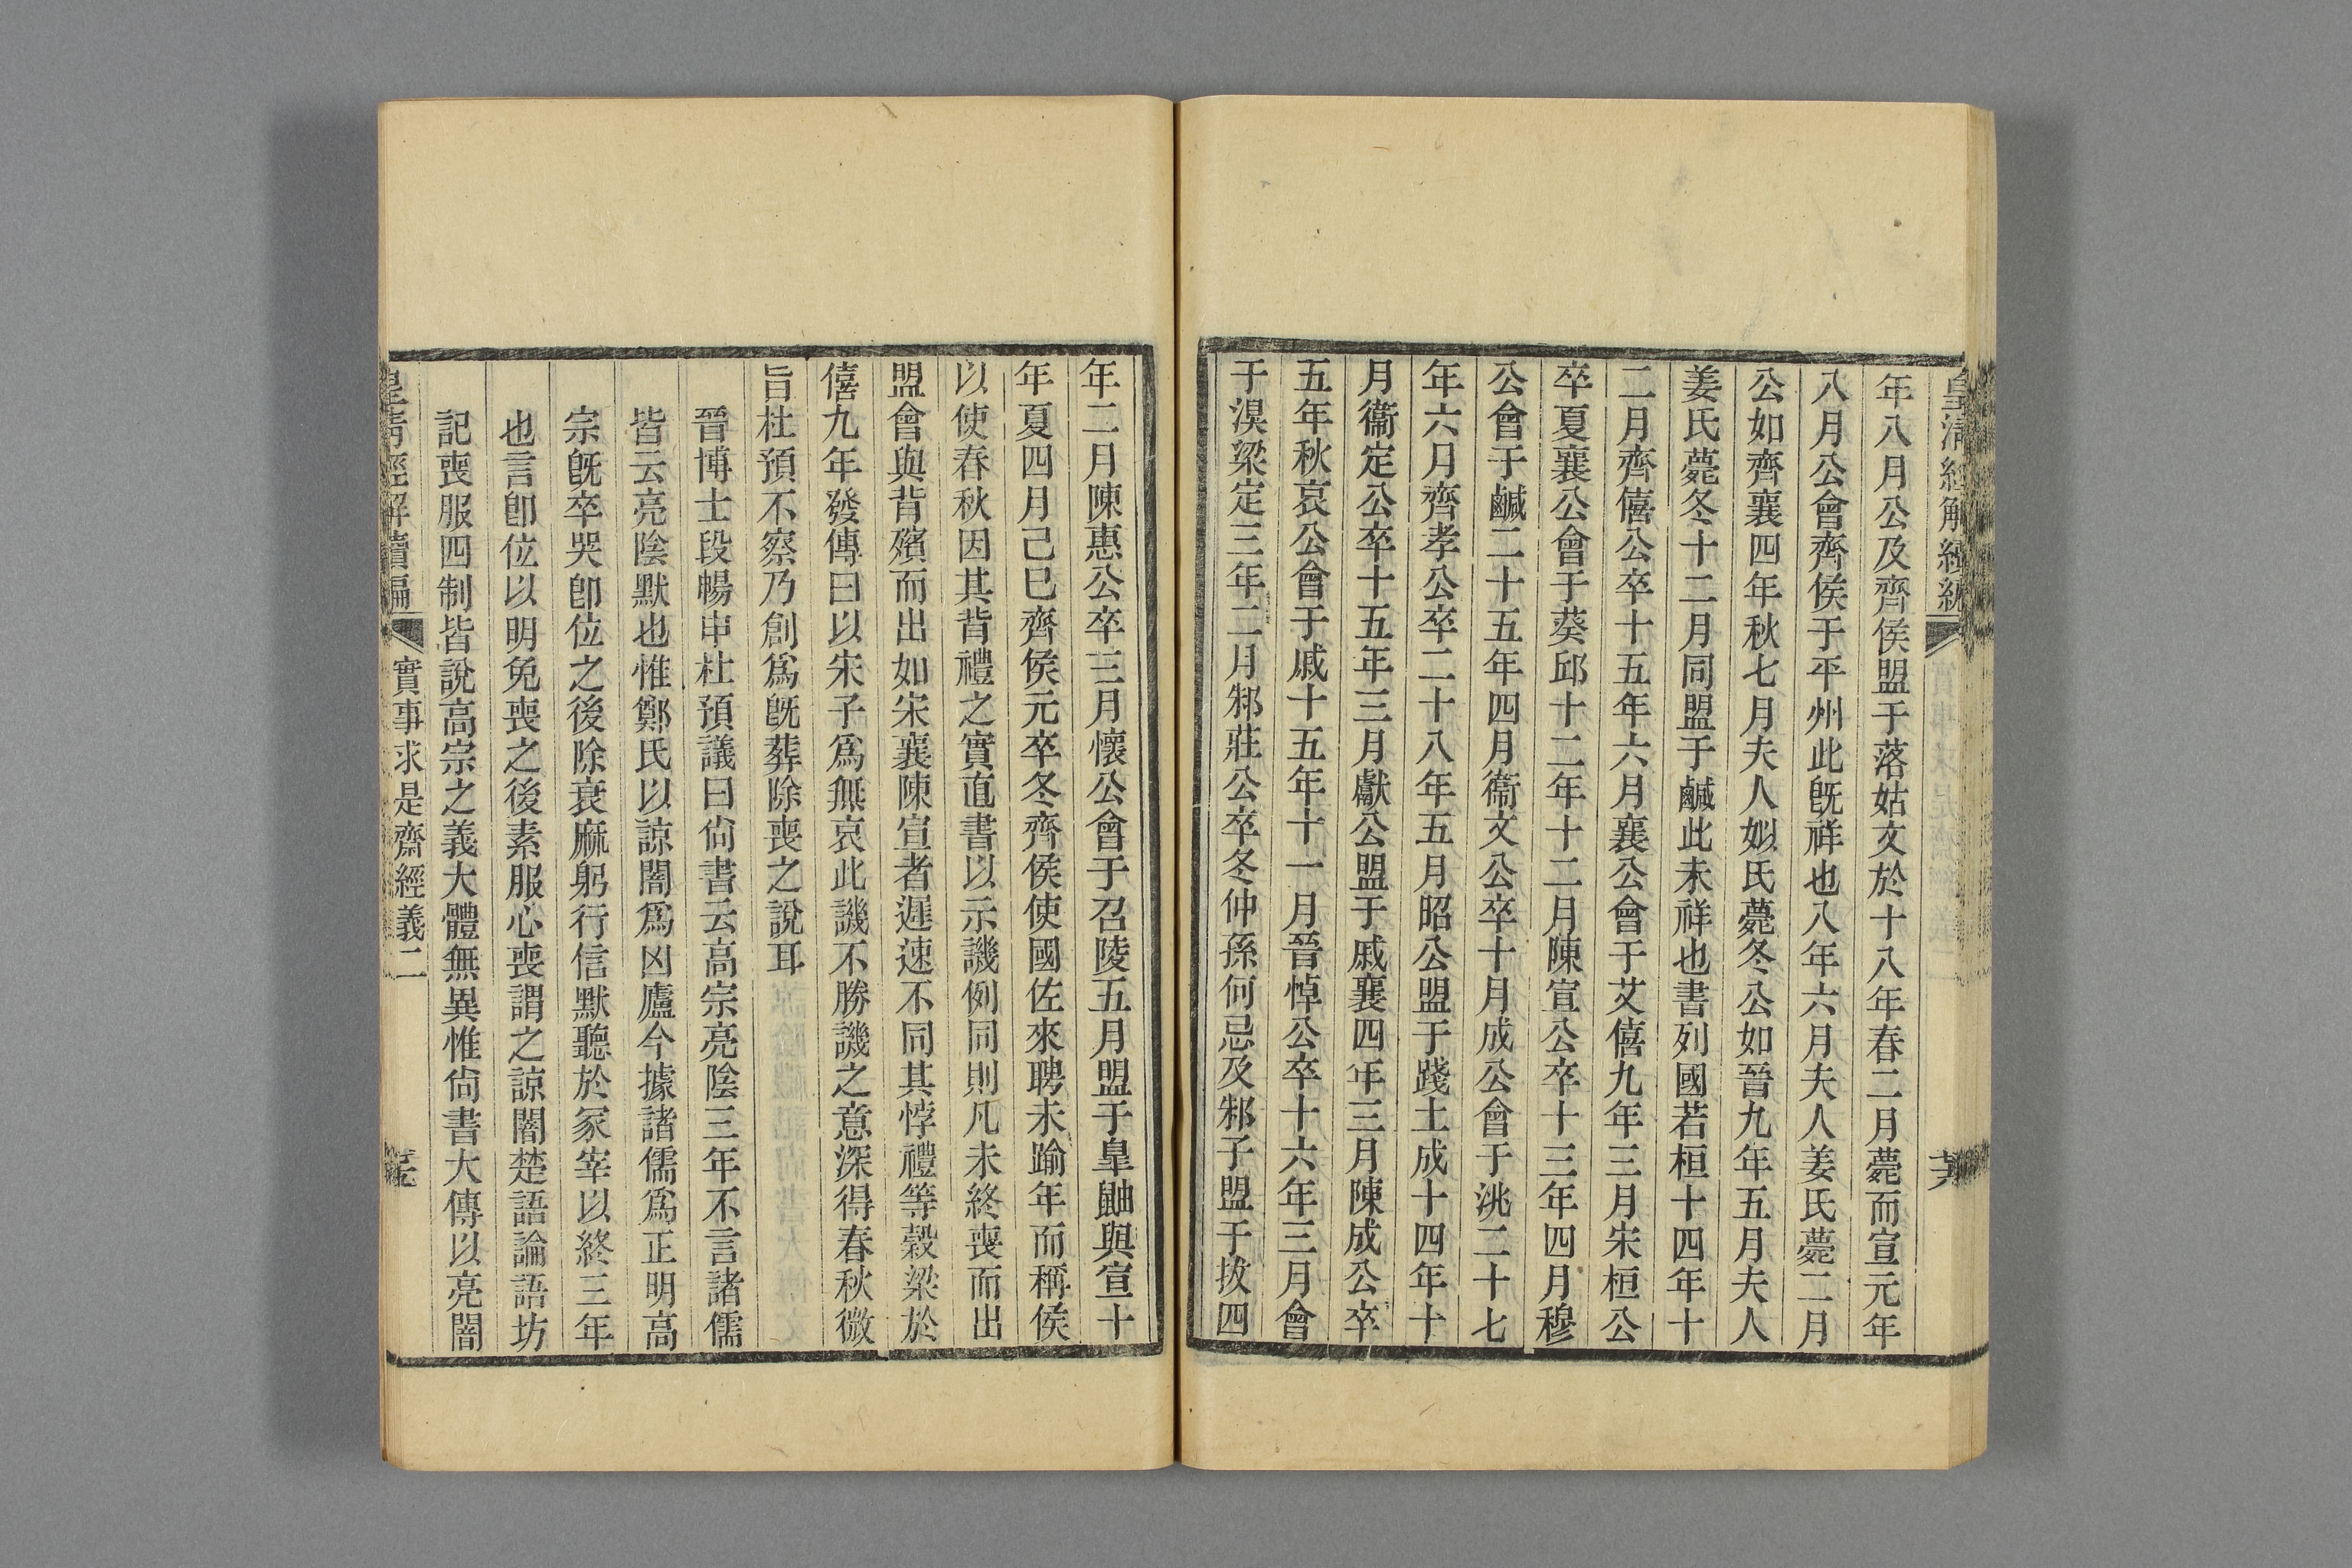 皇清經解續編
年八月公及齊侯盟于落姑文於十八年春二月薨而宣元年
八月公會齊侯于平州此旣祥也八年六月夫人姜氏薨二月
公如齊襄四年秋七月夫人姒氏薨冬公如晉九年五月夫人
姜氏薨冬十二月同盟于鹹此未祥也書列國若桓十四年十
二月齊僖公卒十五年六月襄公會于艾僖九年三月宋桓公
卒夏襄公會于葵邱十二年十二月陳宣公卒十三年四月穆
公會于鹹二十五年四月衞文公卒十月成公會于洮二十七
年六月齊孝公卒二十八年五月昭公盟于踐土成十四年十
月衞定公卒十五年三月獻公盟于戚襄四年三月陳成公卒
五年秋哀公會于戚十五年十一月晉悼公卒十六年三月會
于溴梁定三年二月邾莊公卒冬仲孫何忌及邾子盟于拔四
年二月陳惠公卒三月懷公會于召陵五月盟于皐鼬與宣十
年夏四月己巳齊侯元卒冬齊侯使國佐來聘未踰年而稱侯
以使春秋因其背禮之實直書以示譏例同則凡未終喪而出
盟會與背殯而出如宋襄陳宣者遲速不同其悖禮等穀梁於
僖九年發傳曰以宋子爲無哀此譏不勝譏之意深得春秋微
旨杜預不察乃創爲旣葬除喪之說耳
晉博士段暢申杜預議曰尙書云高宗亮陰三年不言諸儒
皆云亮陰默也惟鄭氏以諒闇爲凶廬今據諸儒爲正明高
宗旣卒哭卽位之後除衰麻躬行信默聽於冢宰以終三年
也言卽位以明免喪之後素服心喪謂之諒闇楚語論語坊
記喪服四制皆說高宗之義大體無異惟尙書大傳以亮闇
皇淸經解續編 實事求是齋經義二